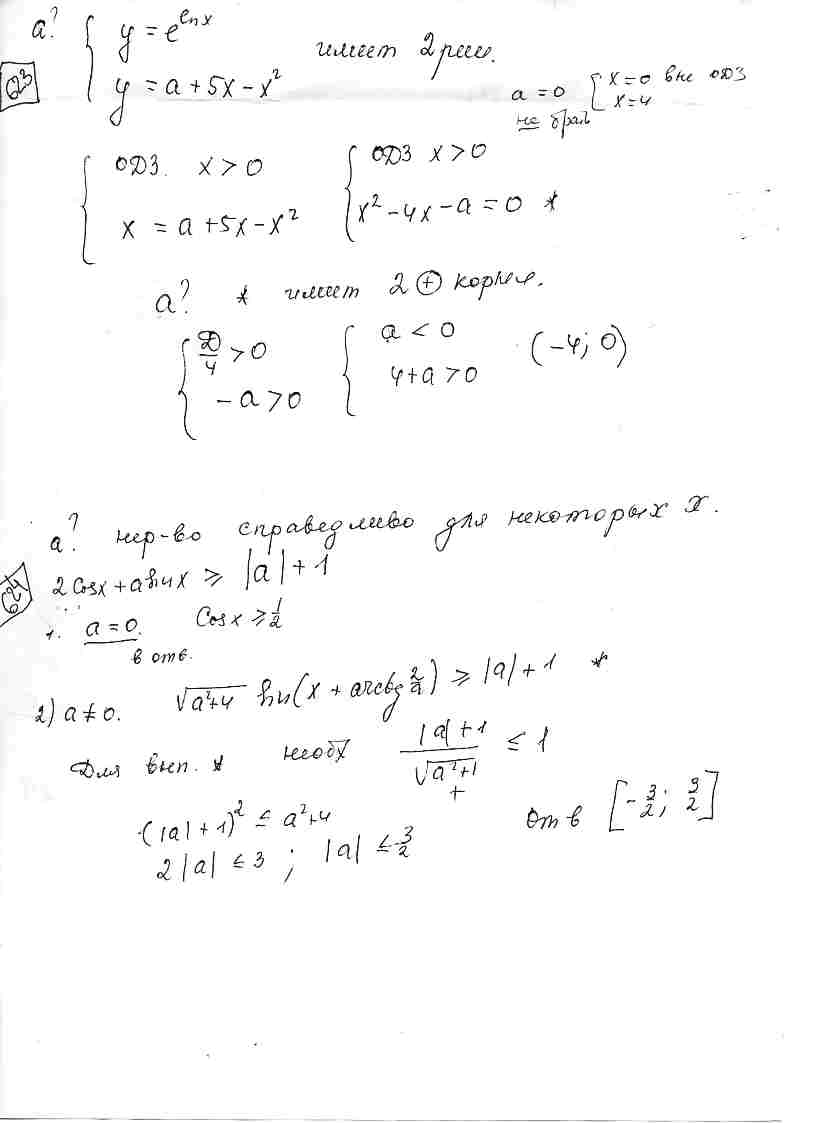 623
a? { y = e^{ln x}
y = a + 5x - x² имеет 2 реш.
a = 0 { x = 0 вне ОДЗ
x = 4
не брать
{ ОДЗ. x > 0
x = a + 5x - x²
{ ОДЗ x > 0
x² - 4x - a = 0 *
a? * имеет 2 ⊕ корня.
{ D/4 > 0
- a > 0
{ a < 0
4 + a > 0
(-4; 0)
624
a? нер-во справедливо для некоторых x.
2 cos x + a sin x ≥ |a| + 1
1. a = 0. cos x ≥ 1/2
в отв.
2) a ≠ 0. √(a²+4) sin(x + arctg 2/a) ≥ |a| + 1 *
Для вып. * необх (|a| + 1)/√(a²+1) ≤ 1
+
(|a| + 1)² ≤ a² + 4
2|a| ≤ 3 ; |a| ≤ 3/2
Отв [-3/2; 3/2]